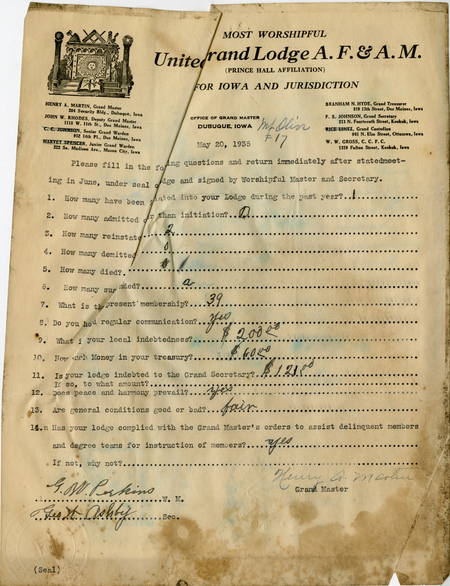 MOST WORSHIPFUL
United Grand Lodge A. F. & A. M.
(PRINCE HALL AFFILIATION)
FOR IOWA AND JURISDICTION
HENRY A. MARTIN, Grand Master
204 Security Bldg., Dubuque, Iowa
JOHN W. RHODES, Deputy Grand Master
1116 W. 11th St., Des Moines, Iowa
C. C. JOHNSON, Senior Grand Warden
952 16th Pl., Des Moines, Iowa
HARVEY SPENCER, Junior Grand Warden
322 So. Madison Ave., Mason City, Iowa
BRANHAM N. HYDE, Grand Treasurer
819 13th Street, Des Moines, Iowa
P. S. JOHNSON, Grand Secretary
1113 N. Fourteenth Street, Keokuk, Iowa
Grand Custodian
941 N. Elm Street, Ottumwa, Iowa
W. W. GROSS, C. C. F. C.
1319 Fulton Street, Keokuk, Iowa
OFFICE OF GRAND MASTER
DUBUQUE, IOWA
Mt Olive
# 17
May 20, 1935
Please fill in the fo ing questions and return immediately after statedmeet-
ing in June, under seal o dge and signed by Worshipful Master and Secretary.
1. How many have been i ated into your Lodge during the past year? 1
2. How many admitted o r than initiation? 0
3. How many reinstate 2
4. How many demitted 0
5. How many died? 1
6. How many sus ded? a
7. What is th present membership? 39
8. Do you ho d regular communication? yes
9. What i your local indebtedness? $ 200.00
10. How much Money in your treasury? $ 60.00
11. Is your lodge indebted to the Grand Secretary? $ 121.00
If so, to what amount?
12. Does peace and harmony prevail? yes
13. Are general conditions good or bad? fair
14. Has your lodge complied with the Grand Master's orders to assist delinquent members
and degree teams for instruction of members? yes
If not, why not?
Henry A. Martin
Grand Master
G. W. Perkins W. M.
Geo W Ashby Sec.
(Seal)